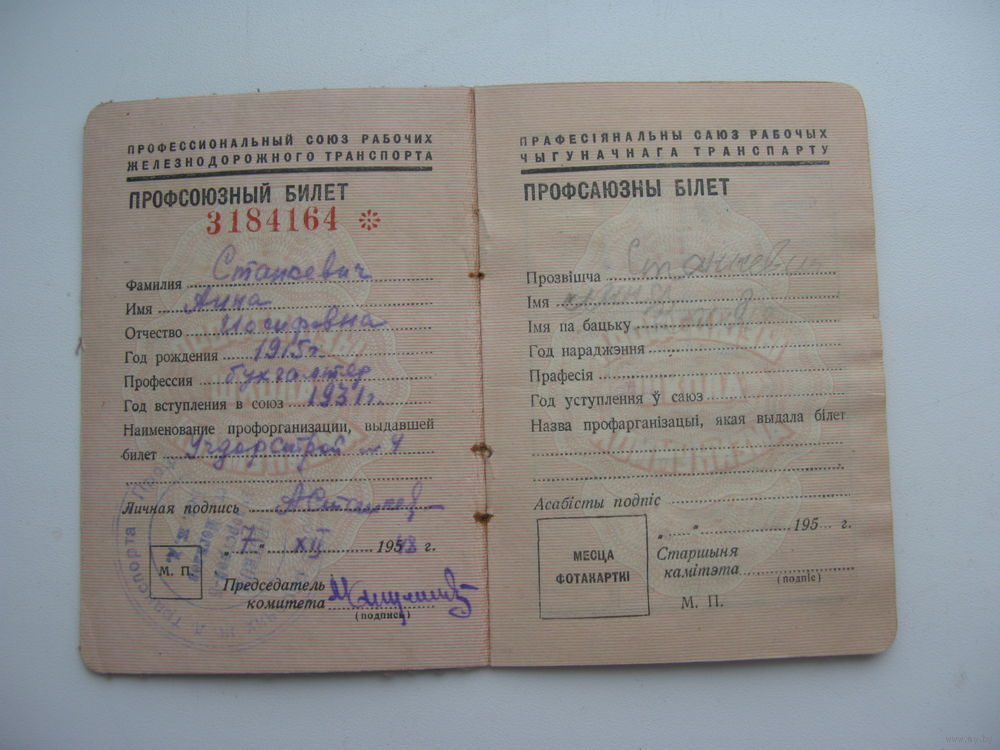 ПРОФЕССИОНАЛЬНЫЙ СОЮЗ РАБОЧИХ
ЖЕЛЕЗНОДОРОЖНОГО ТРАНСПОРТА
ПРОФСОЮЗНЫЙ БИЛЕТ
3184164 *
Фамилия Станкевич
Имя Анна
Отчество Иосифовна
Год рождения 1915 г.
Профессия бухгалтер
Год вступления в союз 1931 г.
Наименование профорганизации, выдавшей
билет Учдорстрой № 4
Личная подпись
„ 7 " XII 195 г.
М. П.
Председатель
комитета
(подпись)
ПРАФЕСІЯНАЛЬНЫ САЮЗ РАБОЧЫХ
ЧЫГУНАЧНАГА ТРАНСПАРТУ
ПРОФСАЮЗНЫ БІЛЕТ
Прозвішча Станкевич
Імя Анна
Імя па бацьку
Год нараджэння
Прафесія
Год уступлення ў саюз
Назва профарганізацыі, якая выдала білет
Асабісты подпіс
„ " 195 г.
МЕСЦА
ФОТАКАРТКІ
Старшыня
камітэта
(подпіс)
М. П.